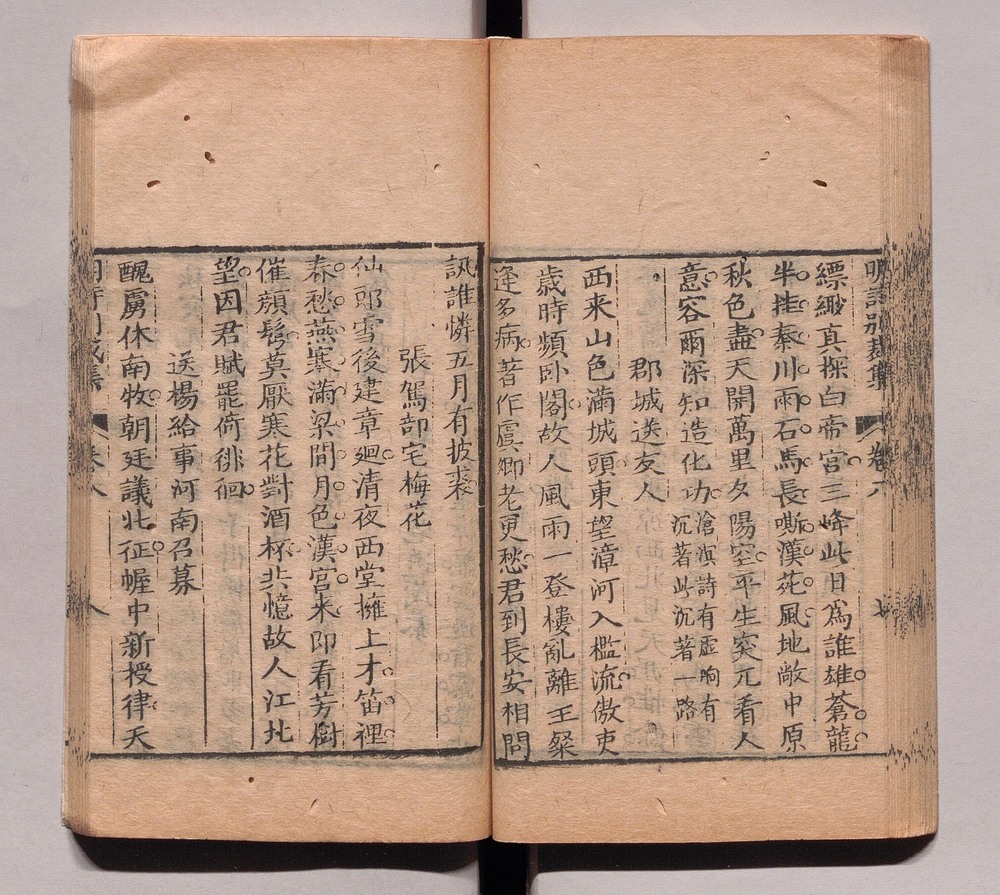 明詩別裁集 卷八 七
縹緲真探白帝宮三峰此日為誰雄蒼龍
半挂秦川雨石馬長嘶漢苑風地敞中原
秋色盡天開萬里夕陽空平生突兀看人
意容爾深知造化功
滄溟詩有虛响有
沉著此沉著一路
郡城送友人
西来山色滿城頭東望漳河入檻流傲吏
歲時頻卧閣故人風雨一登樓亂離王粲
逢多病著作虞卿老更愁君到長安相問
訊誰憐五月有披裘
張駕部宅梅花
仙郎雪後建章廻清夜西堂擁上才笛裡
春愁燕塞滿梁間月色漢宮来即看芳樹
催顏鬢莫厭寒花對酒杯共憶故人江北
望因君賦罷倚徘徊
送楊給事河南召募
醜虜休南牧朝廷議北征幄中新授律天
明詩別裁集 卷八 八